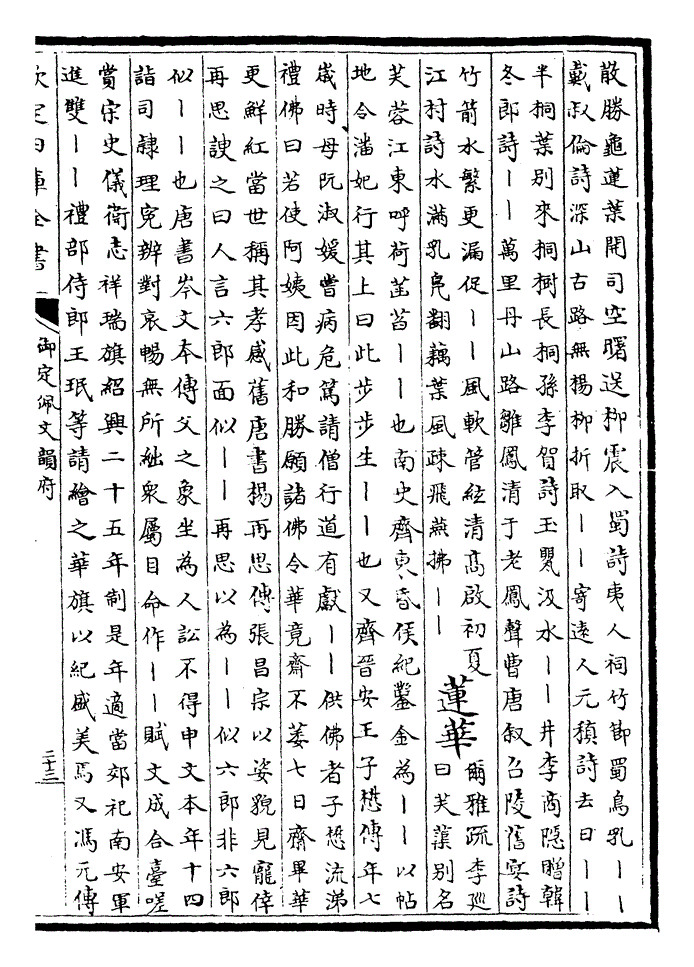 散勝龜蓮葉開司空曙送柳震入蜀詩夷人祠竹節蜀鳥乳丨丨
戴叔倫詩深山古路無楊柳折取丨丨寄遠人元稹詩去日丨丨
半桐葉别來桐樹長桐孫李賀詩玉甖汲水丨丨井李商隱贈韓
冬郎詩丨丨萬里丹山路雛鳳清于老鳳聲曹唐叙召陵舊宴詩
竹箭水繁更漏促丨丨風軟管絃清高啟初夏
江村詩水滿乳鳬翻藕葉風疎飛燕拂丨丨
蓮華
爾雅疏李廵
曰芙蕖别名
芙蓉江東呼荷菡萏丨丨也南史齊東昏侯紀鑿金為丨丨以帖
地令潘妃行其上曰此步步生丨丨也又齊晉安王子懋傳年七
嵗時母阮淑媛嘗病危篤請僧行道有獻丨丨供佛者子懋流涕
禮佛曰若使阿姨因此和勝願諸佛令華竟齋不萎七日齋畢華
更鮮紅當世稱其孝感舊唐書楊再思傳張昌宗以姿貌見寵倖
再思諛之曰人言六郎面似丨丨再思以為丨丨似六郎非六郎
似丨丨也唐書岑文本傳父之象坐為人訟不得申文本年十四
詣司隸理寃辨對哀暢無所絀衆屬目命作丨丨賦文成合臺嗟
賞宋史儀衛志祥瑞旗紹興二十五年制是年適當郊祀南安軍
進雙丨丨禮部侍郎王珉等請繪之華旗以紀盛美焉又馮元傳
欽定四庫全書
御定佩文韻府
二十三